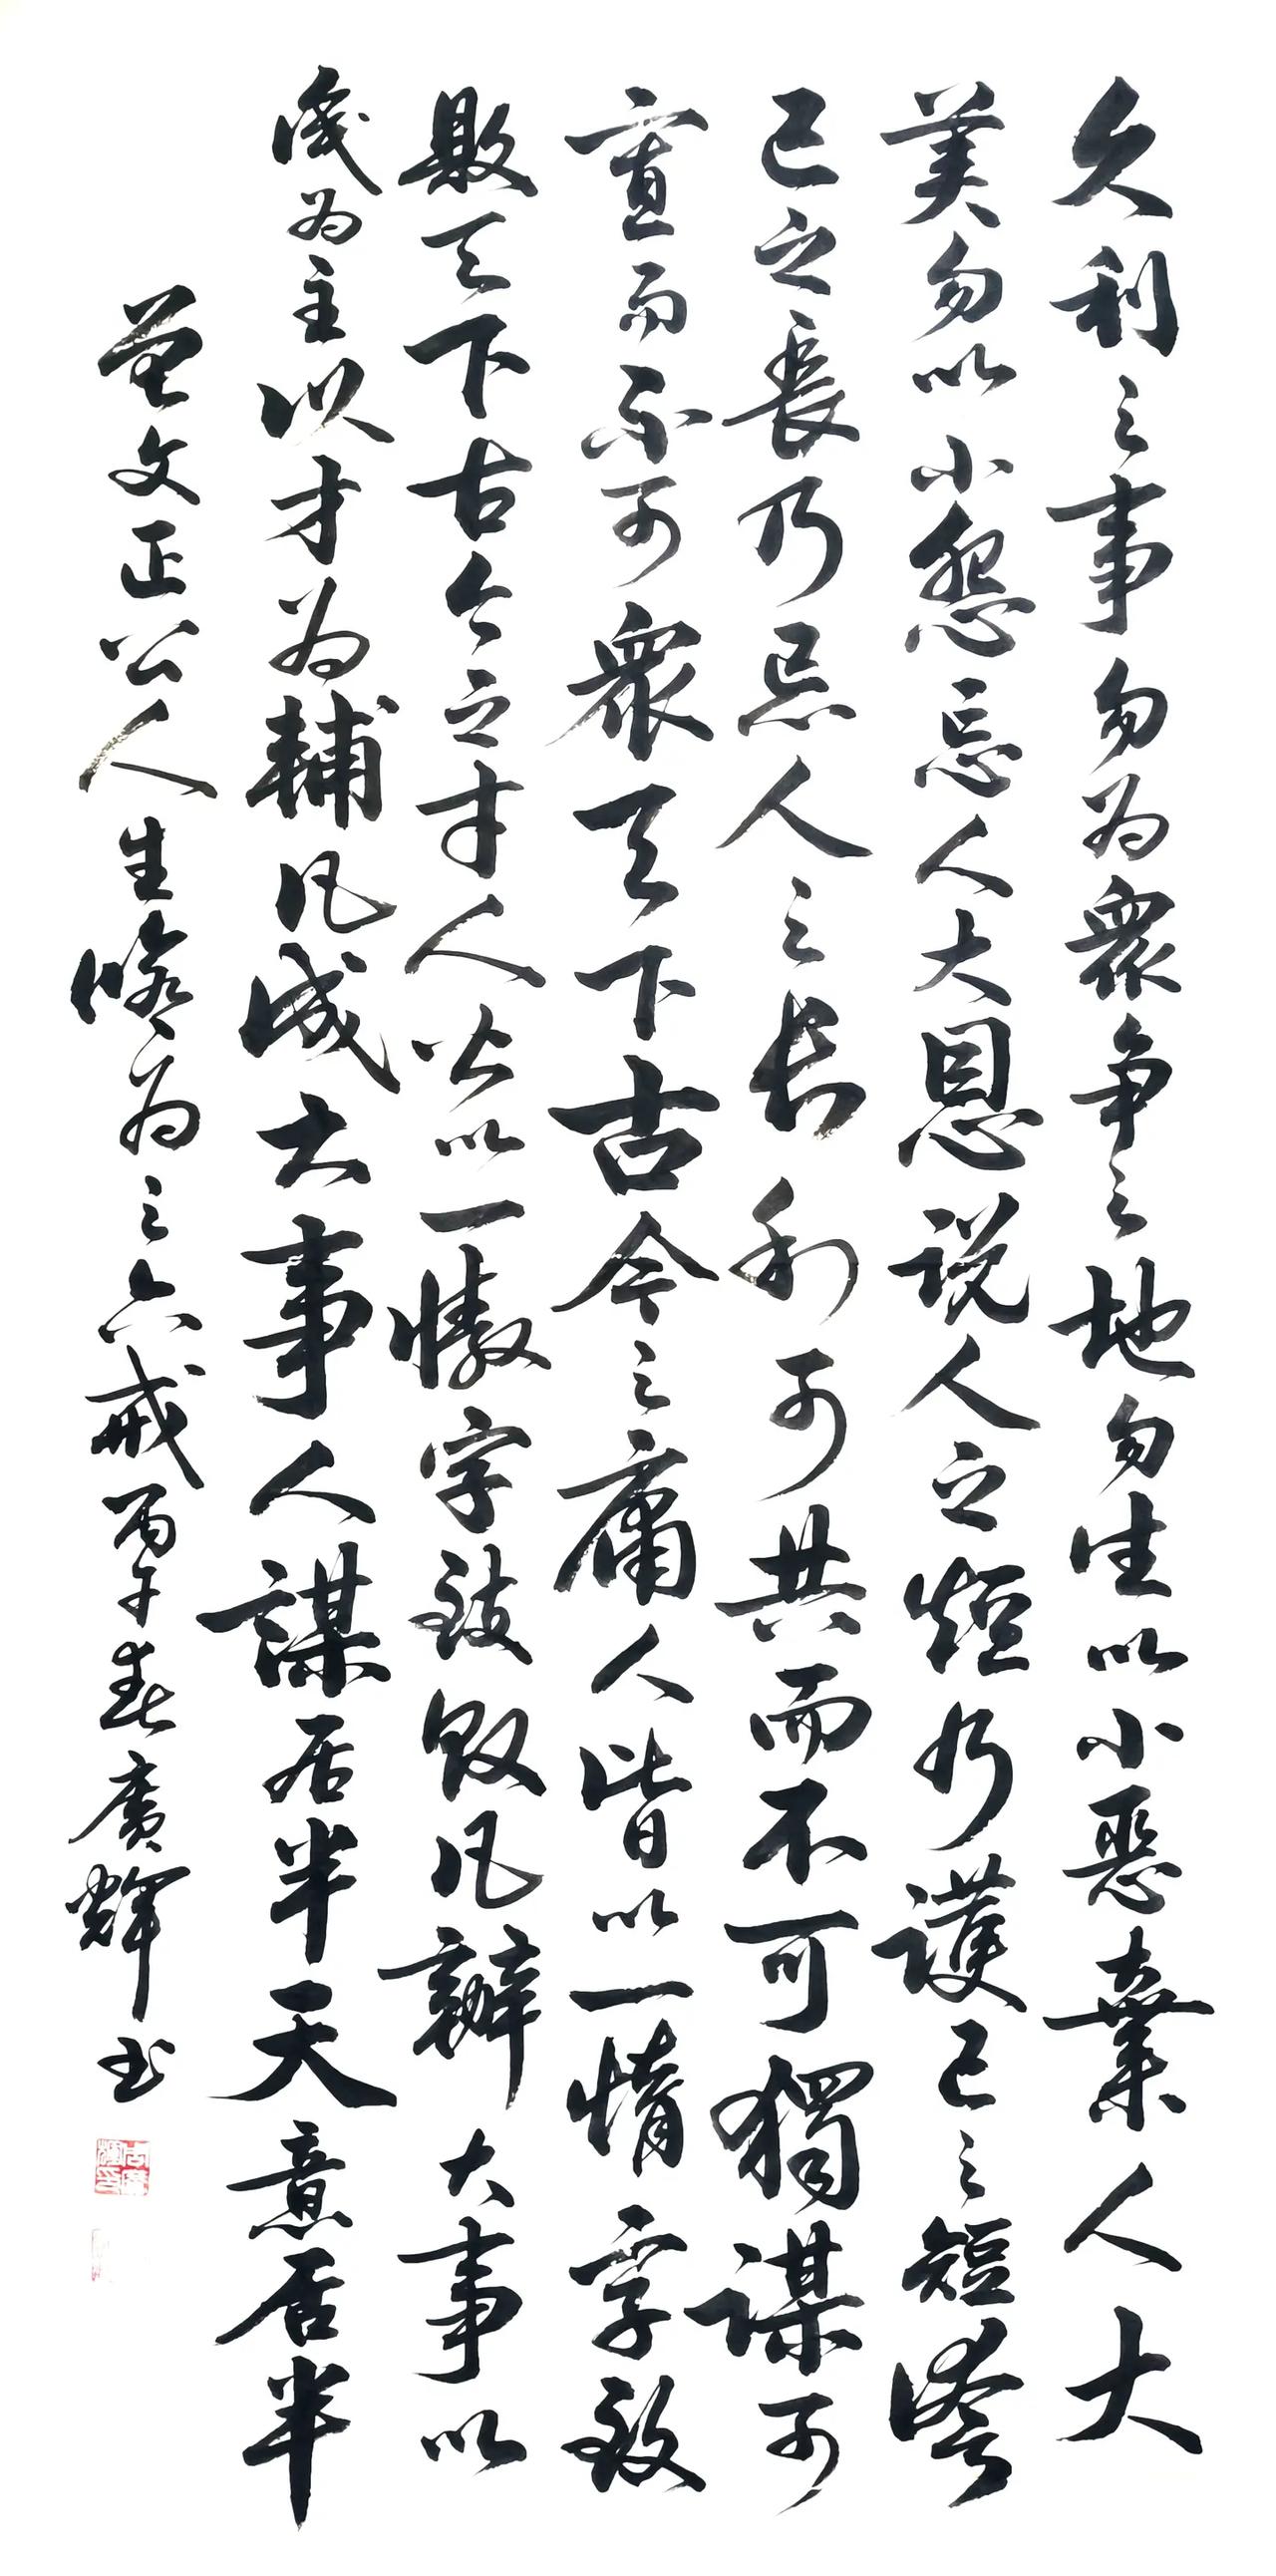 久利之事勿为眾争之地勿往以小惡棄人大
美勿以小怨忘人大恩说人之短乃護己之短誇
己之長乃忌人之長利可共而不可獨謀可
寡而不可眾天下古今之庸人皆以一惰字致
敗天下古今之才人皆以一傲字致敗凡辦大事以
識为主以才为輔凡成大事人謀居半天意居半
曾文正公人生修为之六戒丙午春廣輝书
周廣輝印